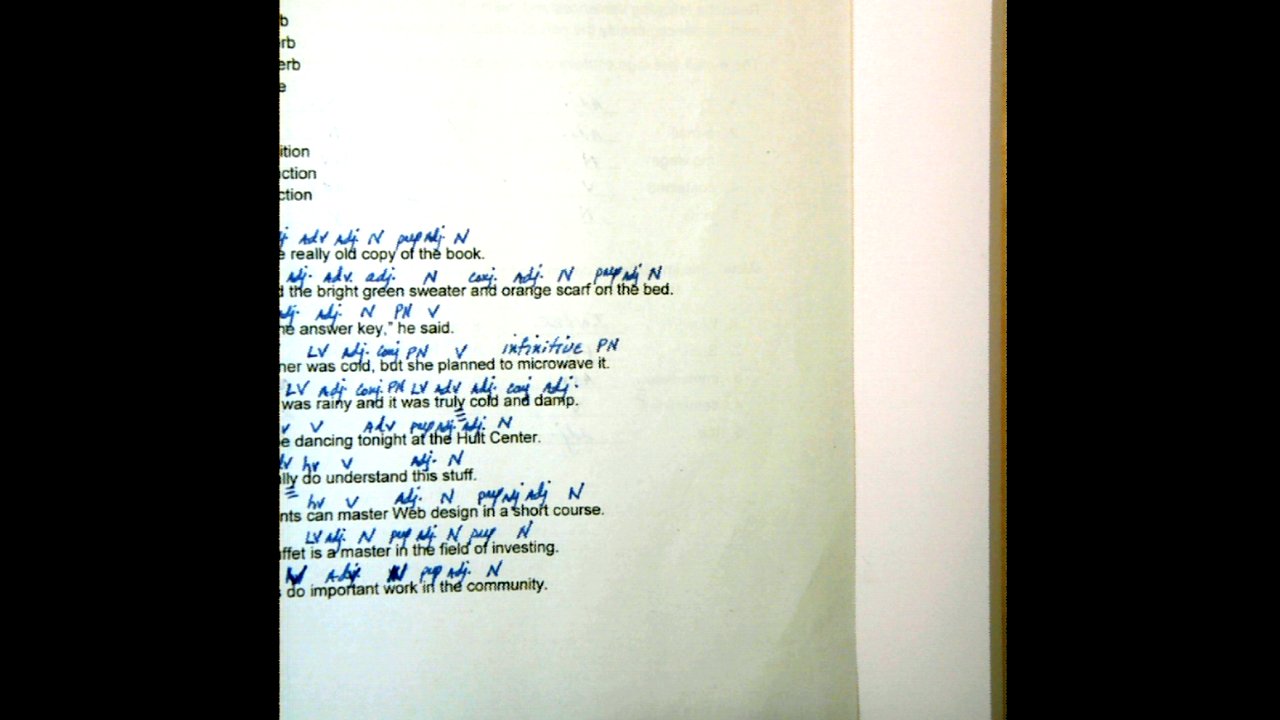 b
rb
erb
e
ition
ction
ction
Adv Adj. N prep Adj. N
e really old copy of the book.
Adj. Adv. adj. N conj. Adj. N prep Adj N
d the bright green sweater and orange scarf on the bed.
adj. Adj. N PN V
he answer key," he said.
LV Adj. conj PN V infinitive PN
ner was cold, but she planned to microwave it.
LV Adj. conj. PN LV Adv Adj. conj Adj.
was rainy and it was truly cold and damp.
v V Adv prep Adj. Adj. N
e dancing tonight at the Hult Center.
dv hv V Adj. N
lly do understand this stuff.
hv V Adj. N prep Adj Adj N
nts can master Web design in a short course.
LV Adj. N prep Adj N prep N
ffet is a master in the field of investing.
V Adj. N prep Adj. N
s do important work in the community.